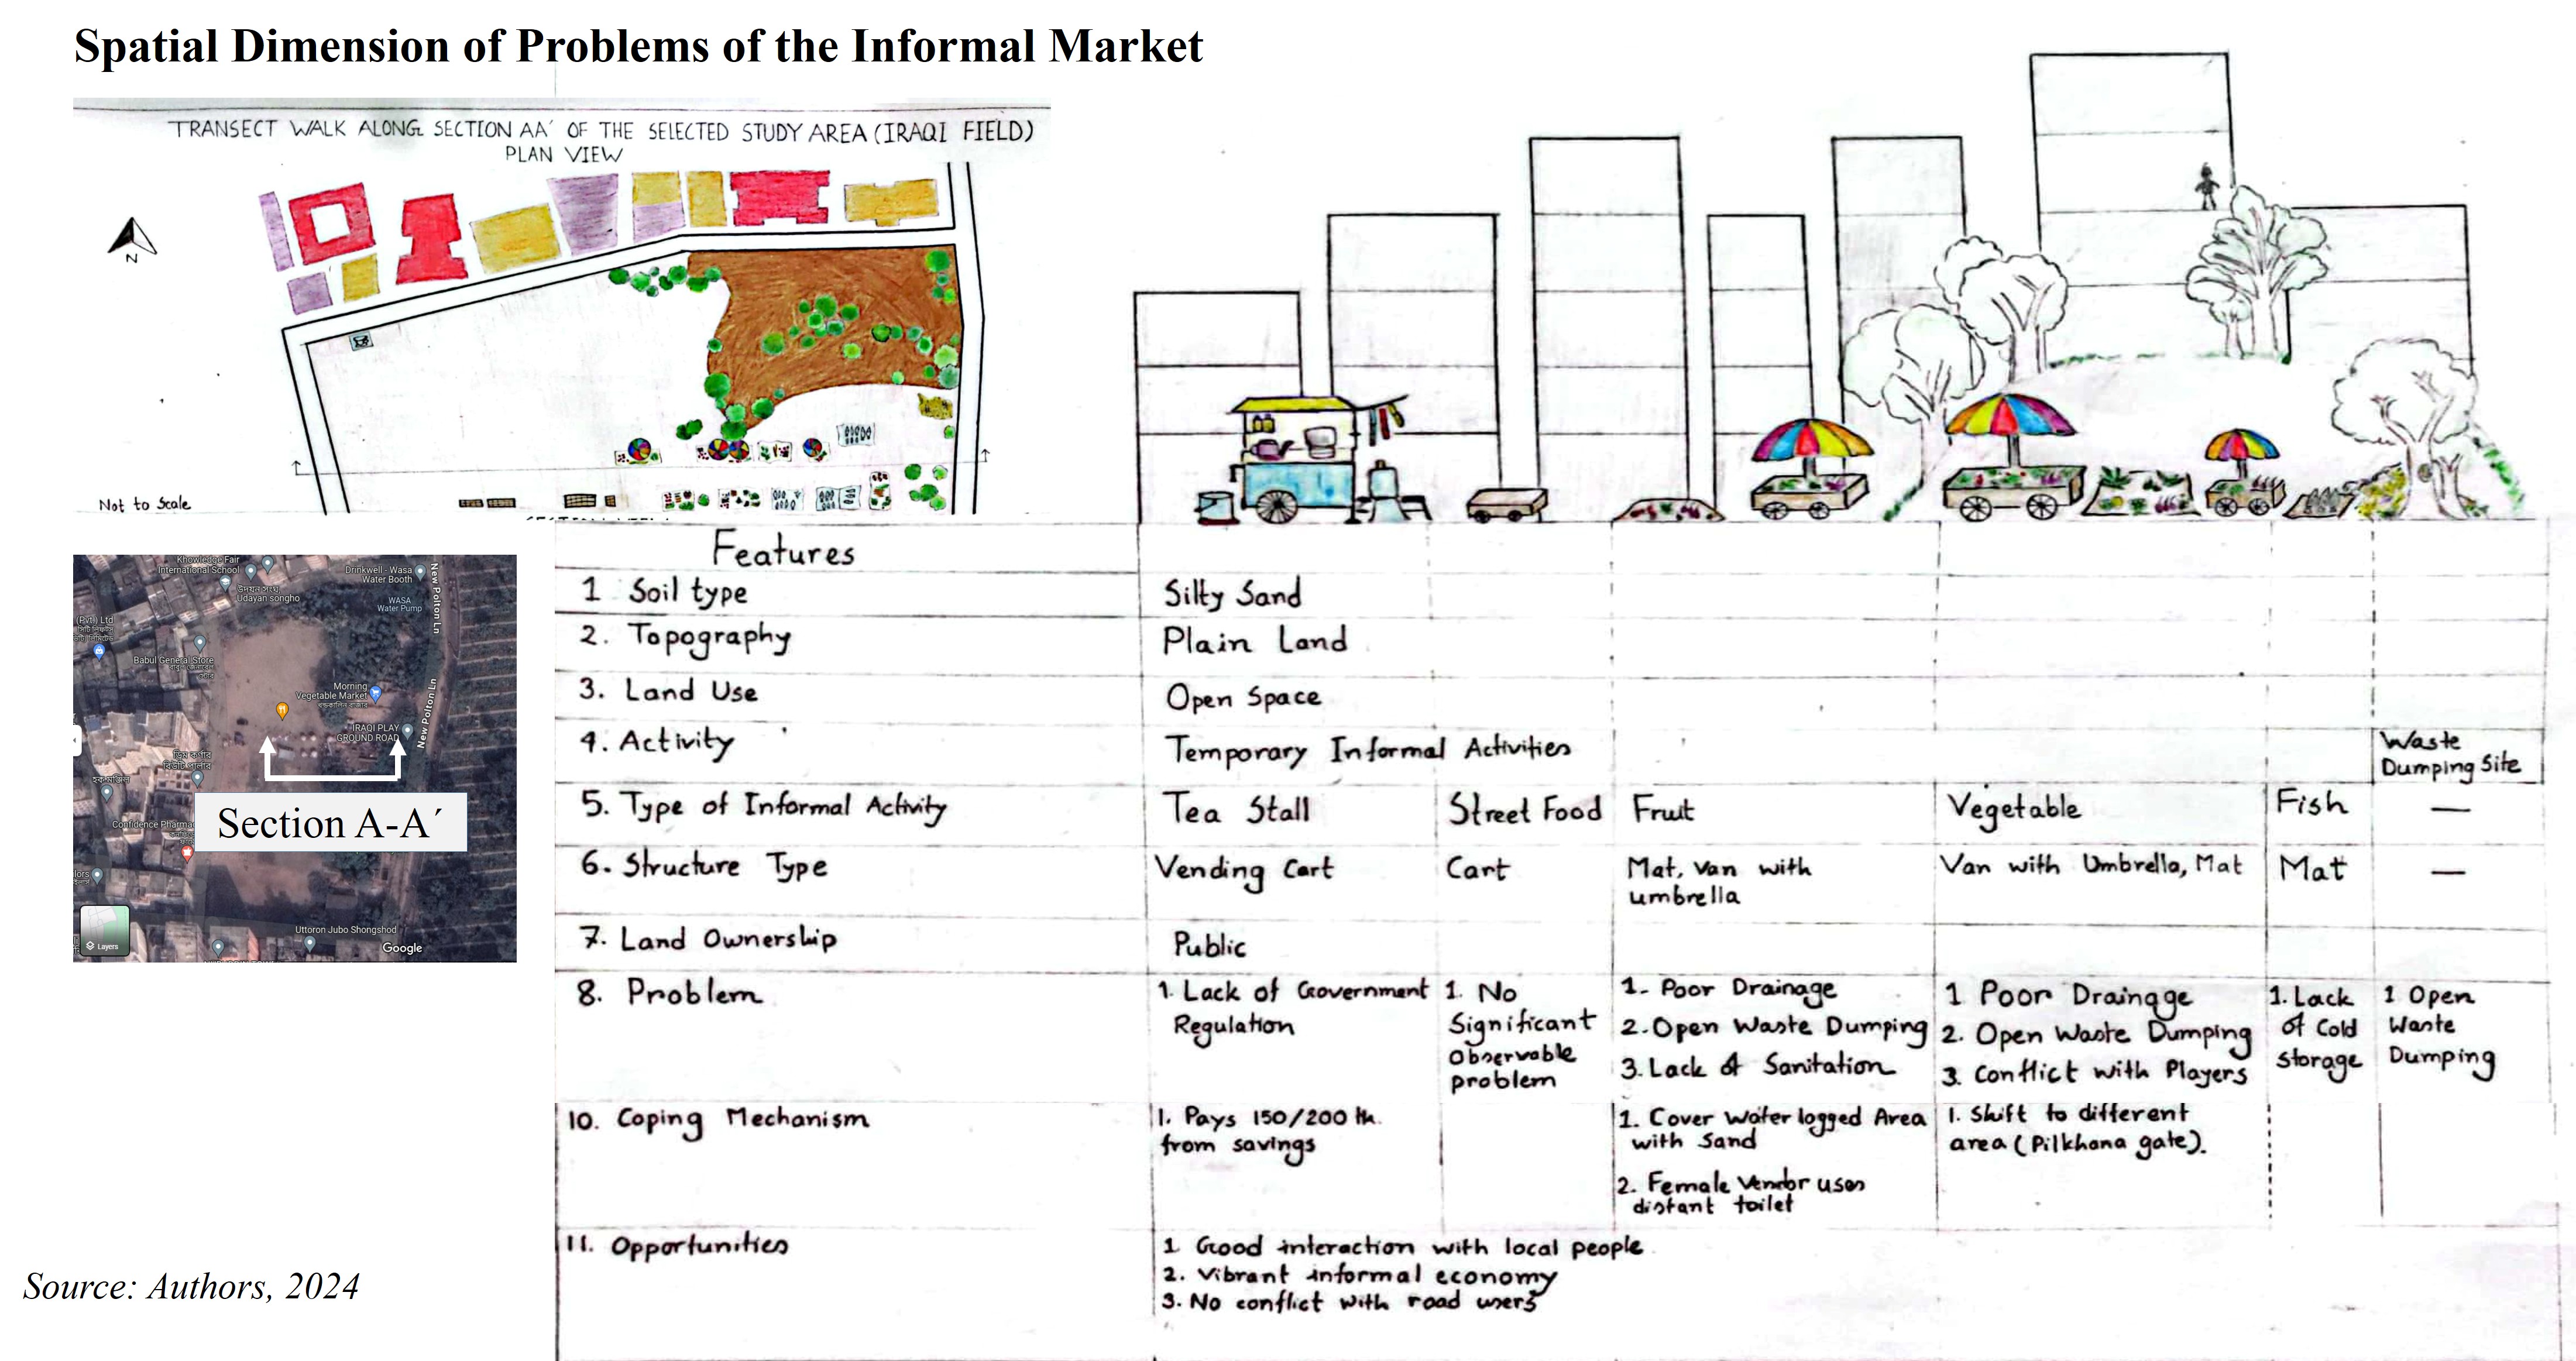 Spatial Dimension of Problems of the Informal Market
TRANSECT WALK ALONG SECTION AA´ OF THE SELECTED STUDY AREA (IRAQI FIELD)
PLAN VIEW
N
Not to Scale
Knowledge Fair
International School
Udayan songho
Drinkwell - Wasa
Water Booth
WASA
Water Pump
New Polton Ln
(Pvt.) Ltd
Babul General Store
Morning
Vegetable Market
IRAQI PLAY
GROUND ROAD
New Polton Ln
Section A-A´
Confidence Pharma
Uttoron Jubo Shongshod
Layers
Google
Features
1 Soil type
Silty Sand
2. Topography
Plain Land
3. Land Use
Open Space
4. Activity
Temporary Informal Activities
Waste
Dumping Site
5. Type of Informal Activity
Tea Stall
Street Food
Fruit
Vegetable
Fish
—
6. Structure Type
Vending Cart
Cart
Mat, Van with
umbrella
Van with Umbrella, Mat
Mat
—
7. Land Ownership
Public
8. Problem
1. Lack of Government
Regulation
1. No
Significant
Observable
problem
1. Poor Drainage
2. Open Waste Dumping
3. Lack of Sanitation
1 Poor Drainage
2. Open Waste Dumping
3. Conflict with Players
1. Lack
of Cold
storage
1 Open
Waste
Dumping
10. Coping Mechanism
1. Pays 150/200 tk.
from savings
1. Cover Water logged Area
with Sand
2. Female Vendor uses
distant toilet
1. Shift to different
area (Pilkhana gate).
11. Opportunities
1 Good interaction with local people
2. Vibrant informal economy
3. No conflict with road users
Source: Authors, 2024